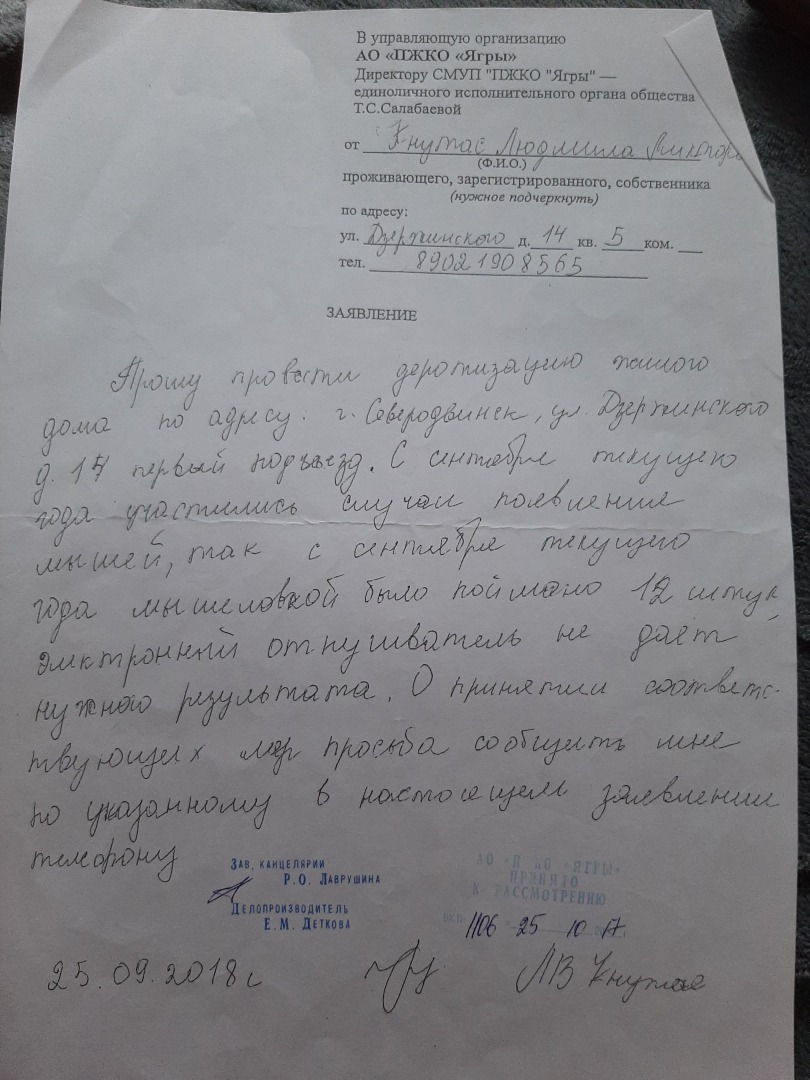 В управляющую организацию
АО «ПЖКО «Ягры»
Директору СМУП "ПЖКО "Ягры" —
единоличного исполнительного органа общества
Т.С.Салабаевой
от Кнутас Людмила Виктор
(Ф.И.О.)
проживающего, зарегистрированного, собственника
(нужное подчеркнуть)
по адресу:
ул. Дзержинского д. 14 кв. 5 ком.
тел. 89021908565
ЗАЯВЛЕНИЕ
Прошу провести деротизацию жилого
дома по адресу: г. Северодвинск, ул. Дзержинского
д. 14 первый подъезд. С сентября текущего
года участились случаи появления
мышей, так с сентября текущего
года мышеловкой было поймано 12 штук,
электронный отпугиватель не даёт
нужного результата. О принятии соответс-
твующих мер просьба сообщить мне
по указанному в настоещем заявлении
телефону
ЗАВ. КАНЦЕЛЯРИИ
Р.О. ЛАВРУШИНА
ДЕЛОПРОИЗВОДИТЕЛЬ
Е.М. ДЕТКОВА
АО «ПЖКО «ЯГРЫ»
ПРИНЯТО
К РАССМОТРЕНИЮ
1106 25 10 17
25.09.2018 г ЛВ Кнутас